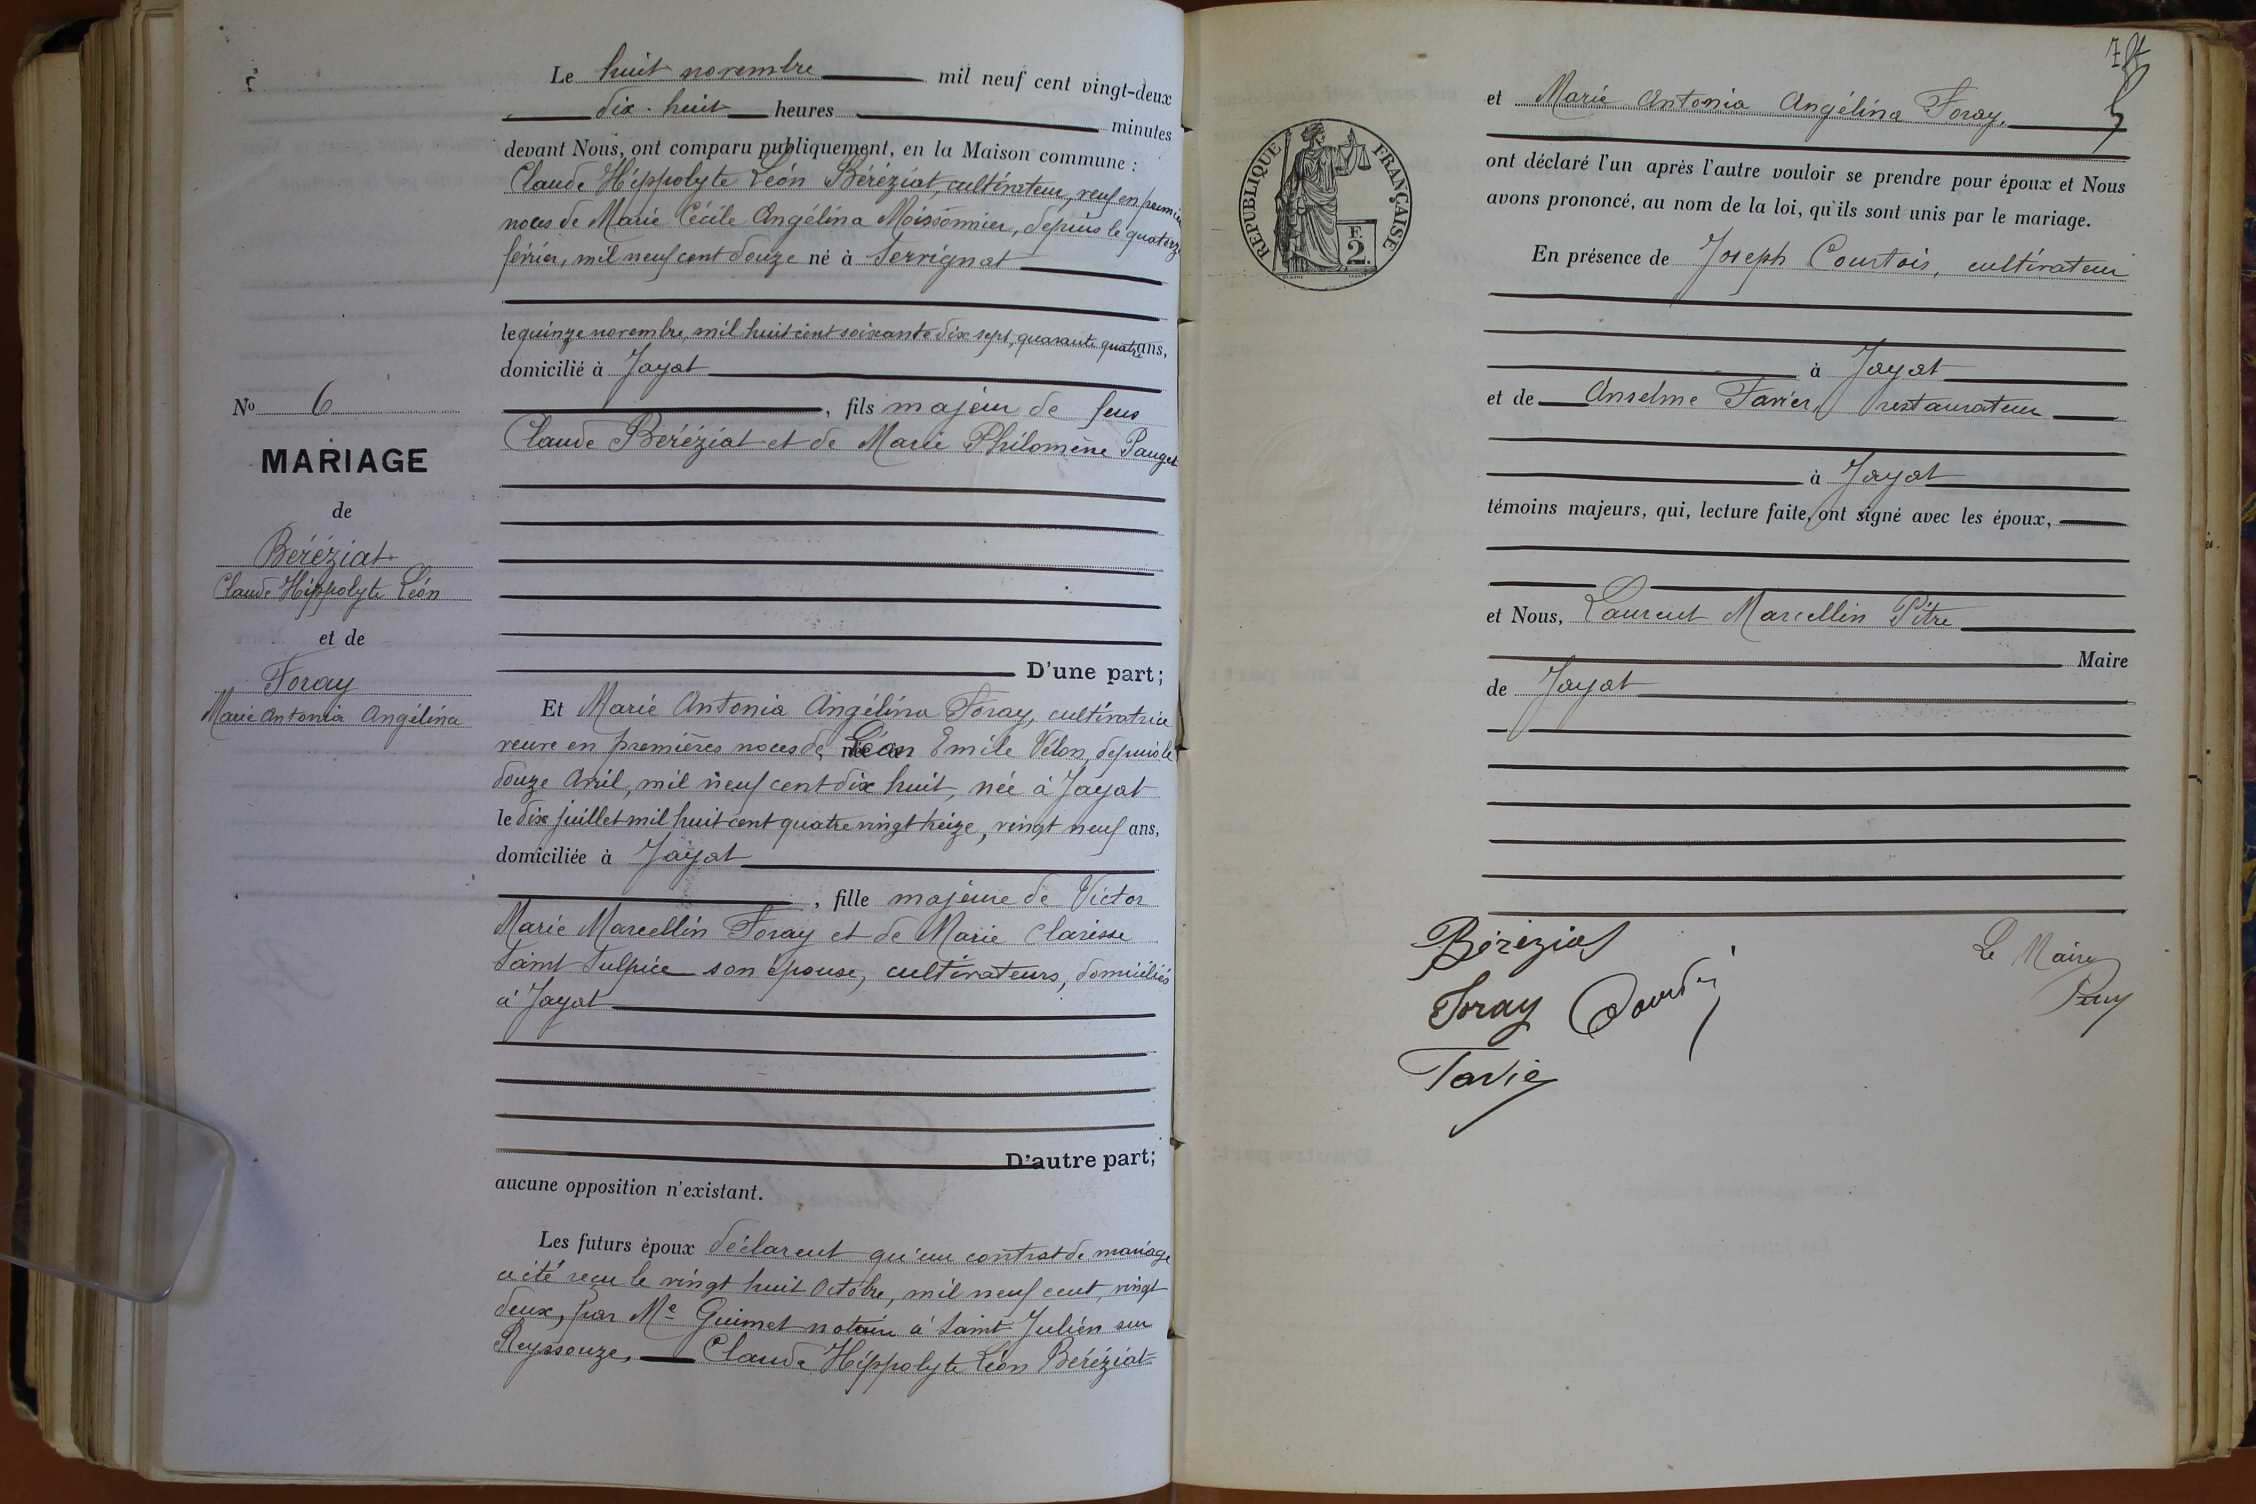 Le huit novembre mil neuf cent vingt-deux
dix-huit heures minutes
devant Nous, ont comparu publiquement, en la Maison commune :
Claude Hippolyte Léon Béréziat, cultivateur, veuf en premières
noces de Marie Cécile Angélina Moissonnier, depuis le quatorze
février, mil neuf cent douze né à Servignat
le quinze novembre, mil huit cent soixante dix sept, quarante quatre ans,
domicilié à Jayat
, fils majeur de feus
Claude Beréziat et de Marie Philomène Pauget
D'une part;
Et Marie Antonia Angélina Foray, cultivatrice
veuve en premières noces de Léon Emile Vélon, depuis le
douze Avril, mil neuf cent dix huit, née à Jayat
le dix juillet mil huit cent quatre vingt treize, vingt neuf ans,
domiciliée à Jayat
, fille majeure de Victor
Marie Marcellin Foray et de Marie Clarisse
Saint Sulpice son épouse, cultivateurs, domiciliés
à Jayat
D'autre part;
aucune opposition n'existant.
Les futurs époux déclarent qu'un contrat de mariage
a été reçu le vingt huit Octobre, mil neuf cent, vingt
deux, par Me Guimet notaire à Saint Julien sur
Reyssouze, Claude Hippolyte Léon Beréziat
No 6
MARIAGE
de
Beréziat
Claude Hippolyte Léon
et de
Foray
Marie Antonia Angélina
et Marie Antonia Angélina Foray,
ont déclaré l'un après l'autre vouloir se prendre pour époux et Nous
avons prononcé, au nom de la loi, qu'ils sont unis par le mariage.
RÉPUBLIQUE FRANÇAISE
F.
2.
En présence de Joseph Courtois, cultivateur
à Jayat
et de Anselme Favier, restaurateur
à Jayat
témoins majeurs, qui, lecture faite, ont signé avec les époux,
et Nous, Laurent Marcellin Pitre
Maire
de Jayat
Béréziat
Le Maire
Foray